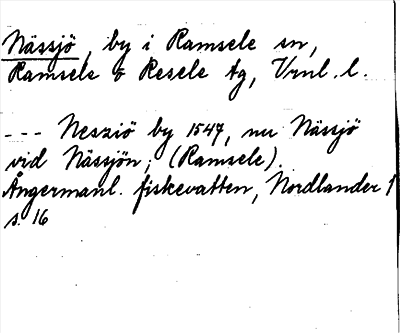 Nässjö, by i Ramsele sn,
Ramsele & Resele tg, Vrnl. l.
--- Nesziö by 1547, nu Nässjö
vid Nässjön, (Ramsele).
Ångermanl. fiskevatten, Nordlander 1
s. 16